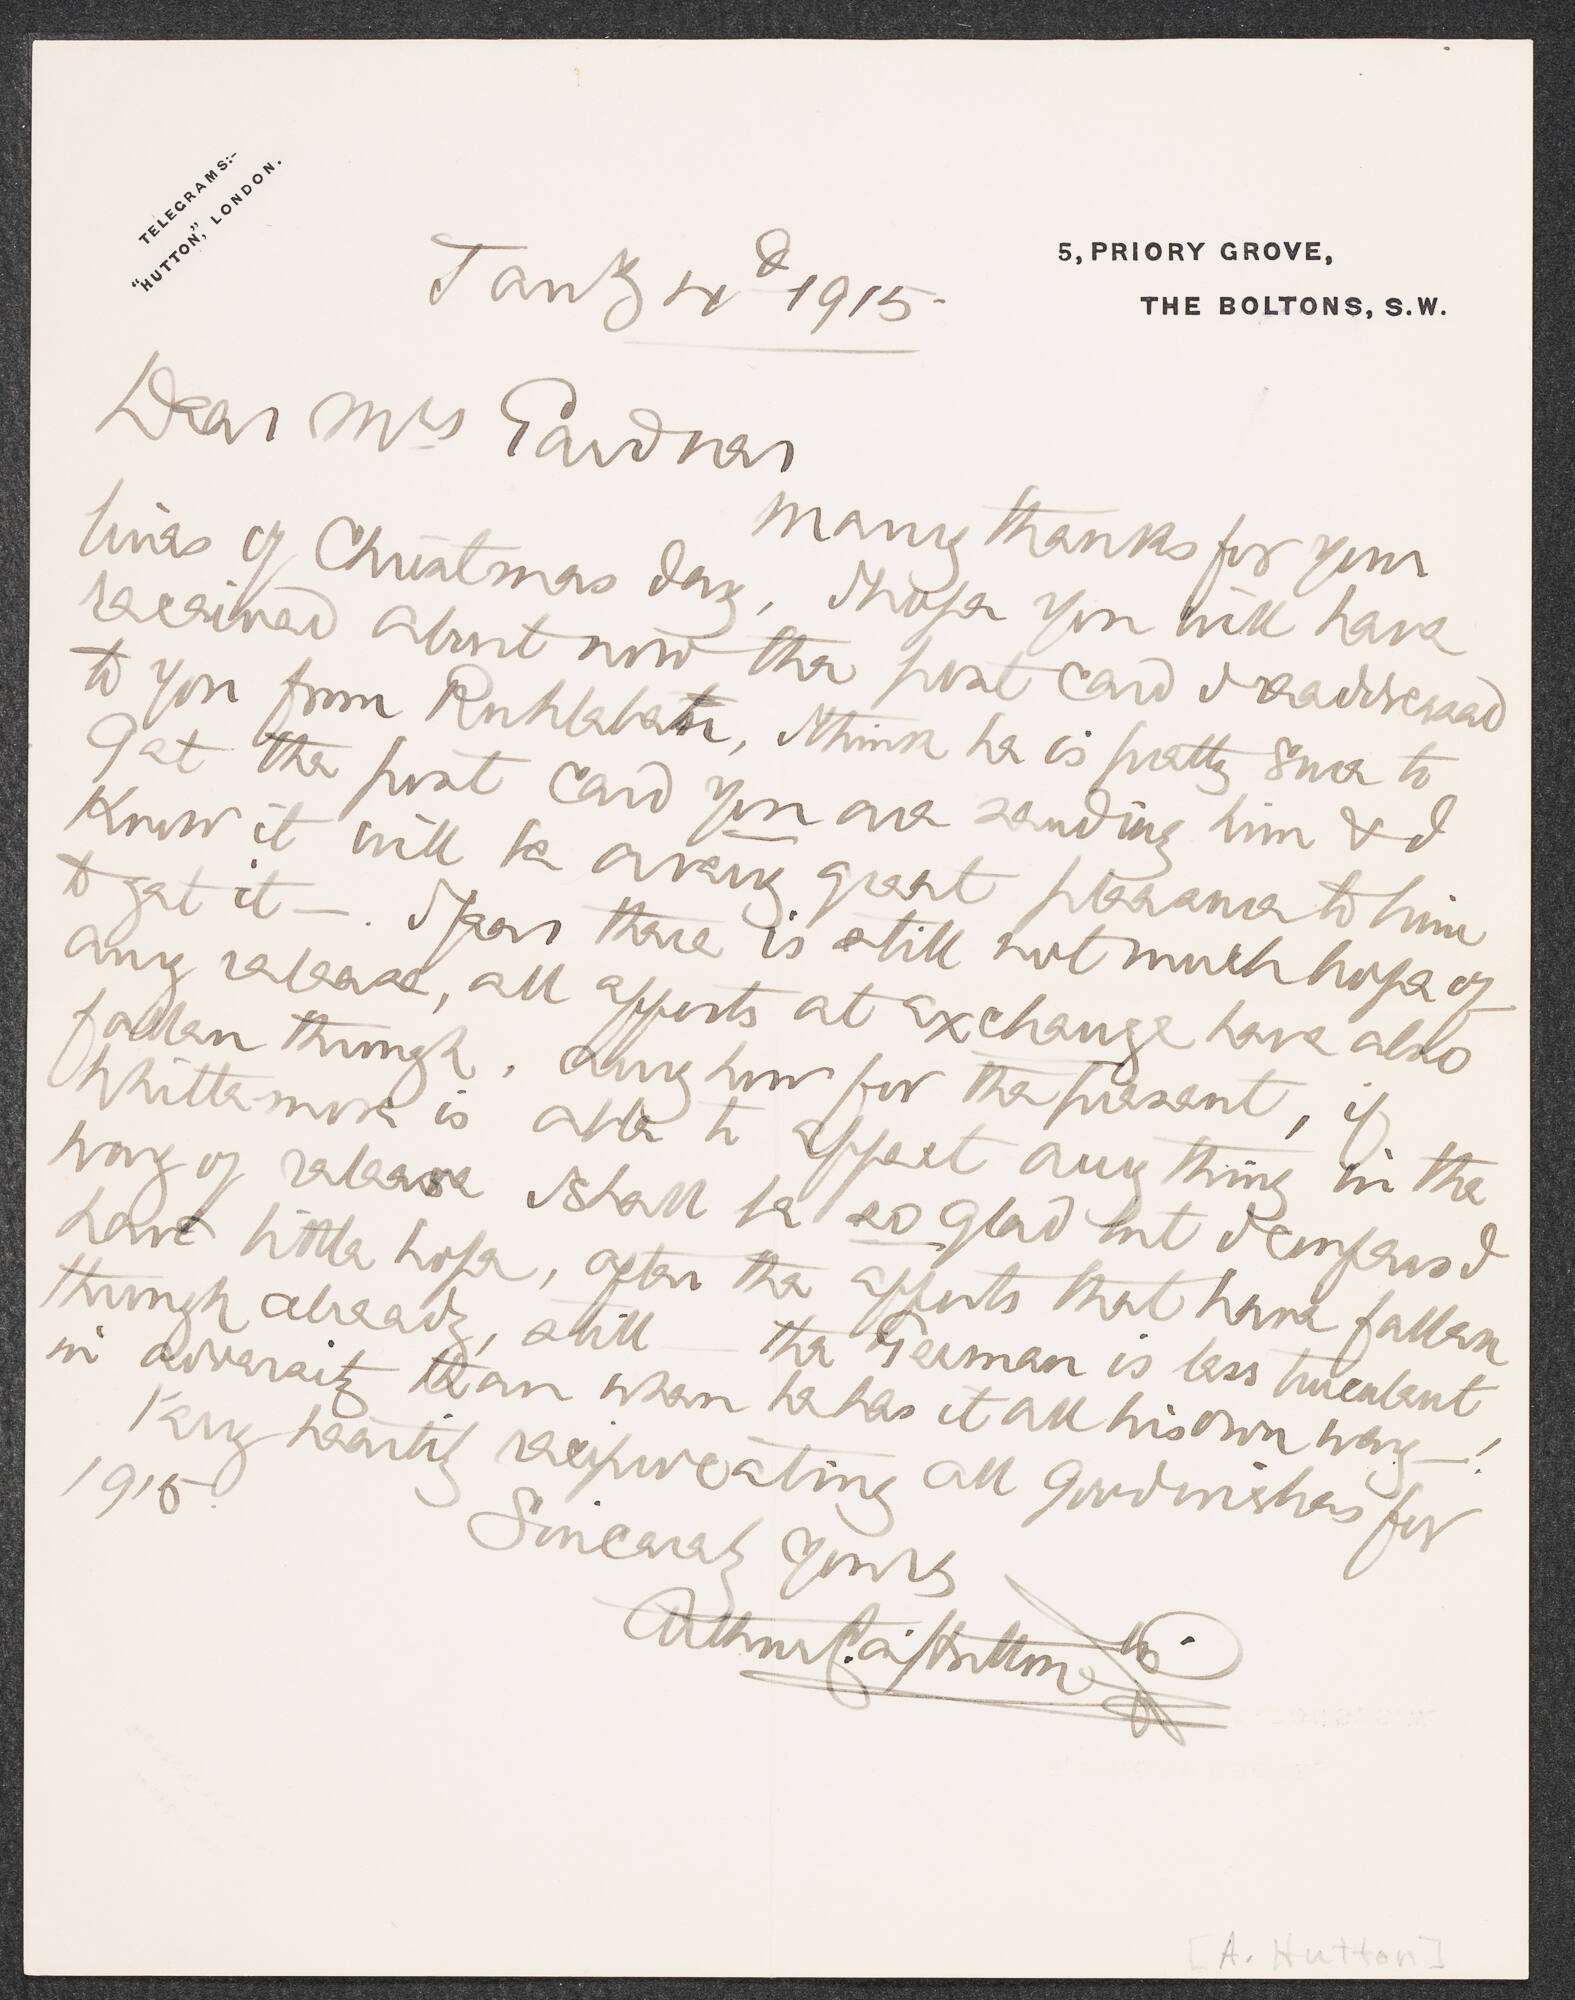 TELEGRAMS:-
"HUTTON," LONDON.
5, PRIORY GROVE,
THE BOLTONS, S.W.
Jany 4th 1915.
Dear Mrs Gardner
Many thanks for your
lines of Christmas day, I hope you will have
received about now the post card I readdressed
to you from Ruhleben, I think he is pretty sure to
get the post card you are sending him & I
know it will be a very great pleasure to him
to get it —. I fear there is still not much hope of
any release, all efforts at exchange have also
fallen through. Any how for the present, if
Whittemore is able to effect any thing in the
way of release I shall be so glad but I confess I
have little hope, after the efforts that have fallen
through already, still — the German is less truculent
in adversity than when he has it all his own way —!
Very heartily reciprocating all good wishes for
1915.
Sincerely yours
Arthur Hutton
[A. Hutton]